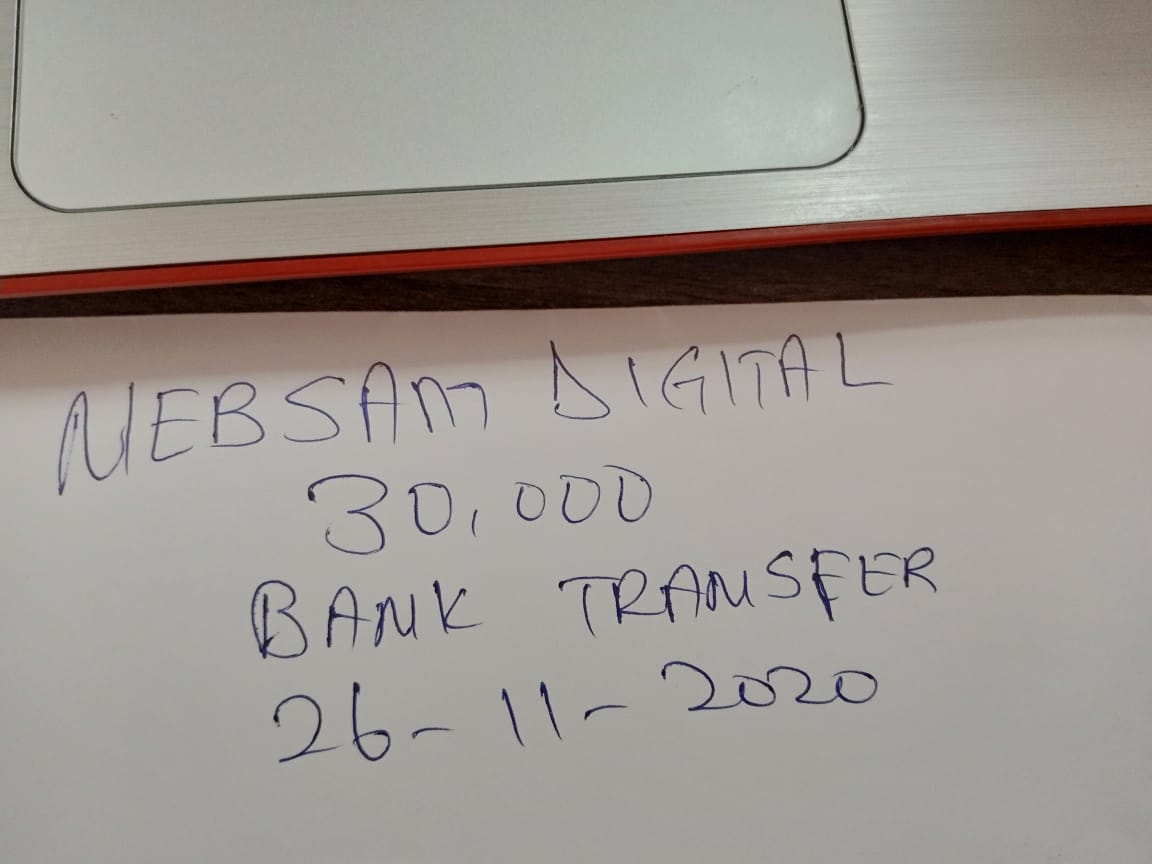 NEBSAM DIGITAL
30,000
BANK TRANSFER
26-11-2020